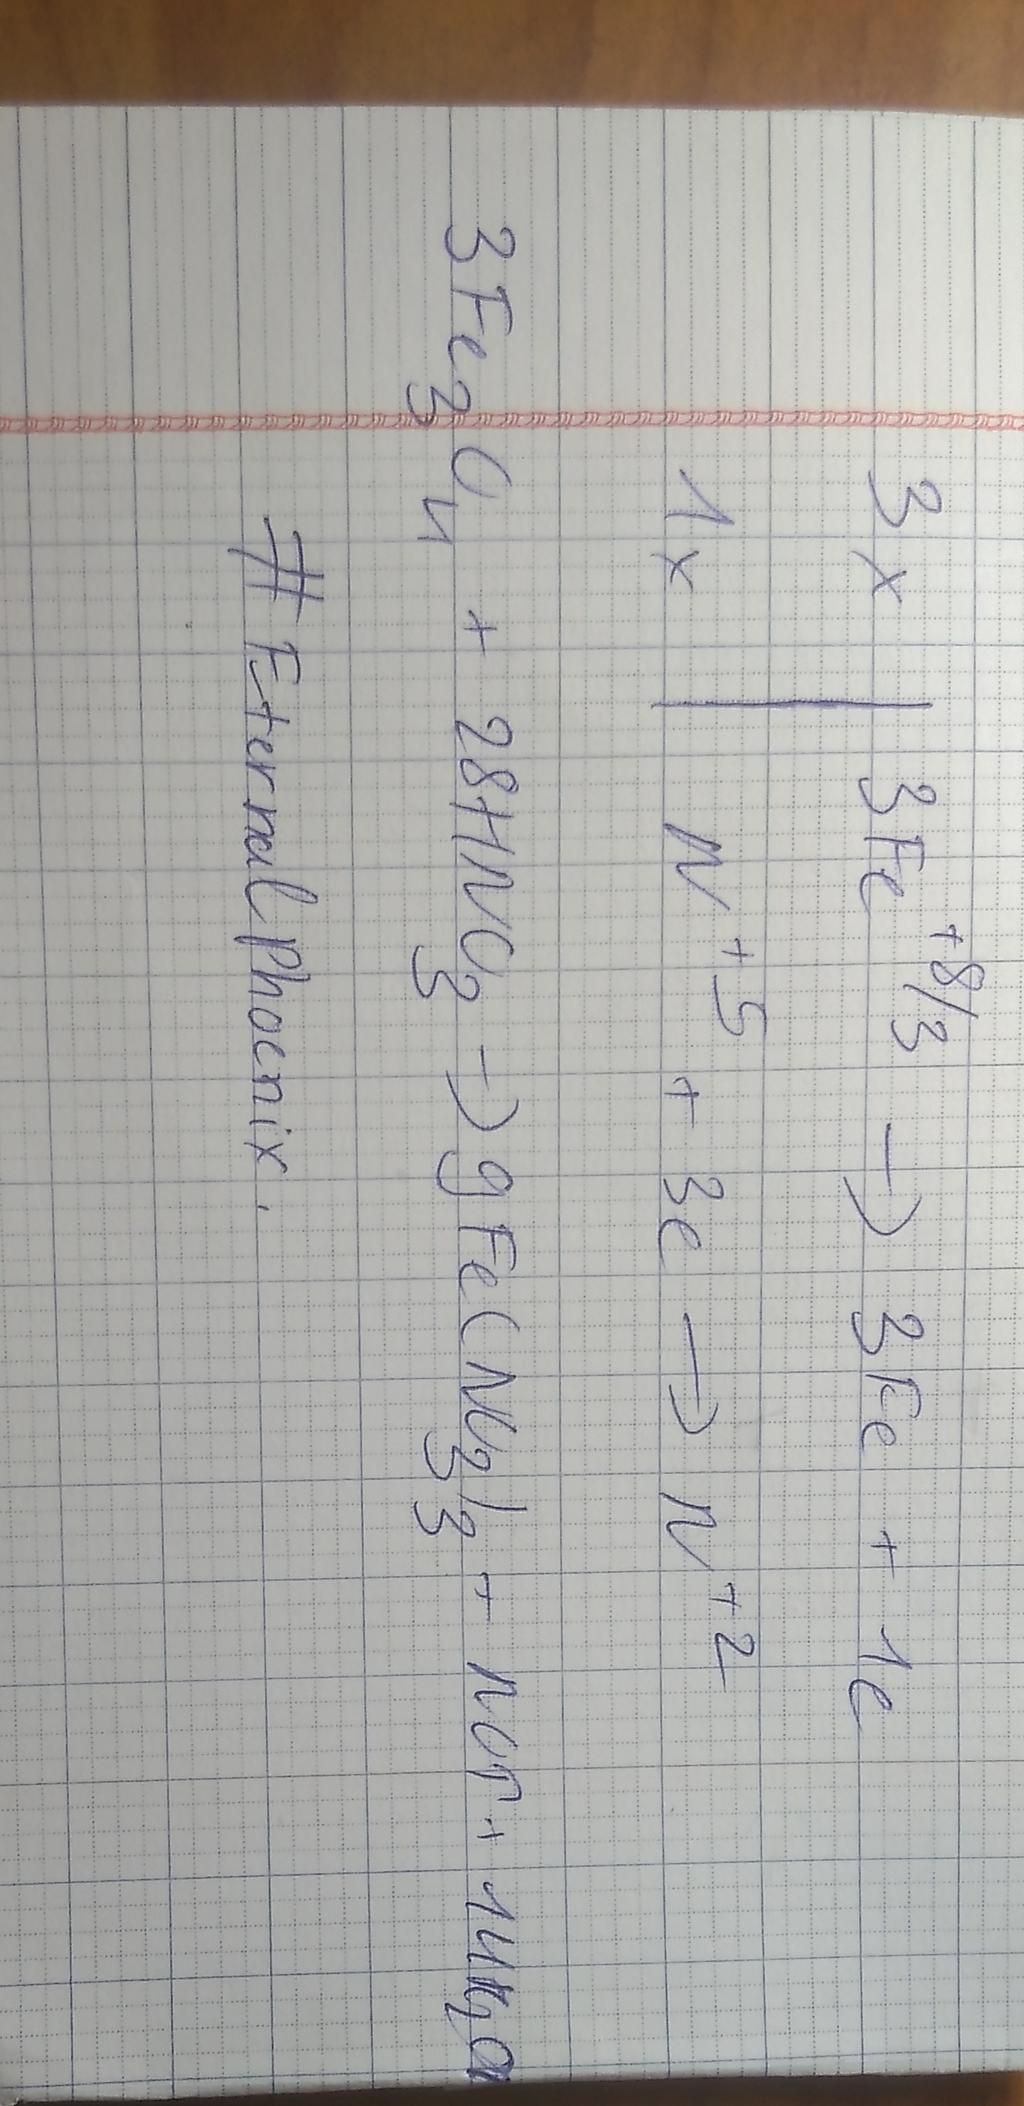 3x | 3Fe⁺⁸/³ → 3Fe + 1e
1x | N⁺⁵ + 3e → N⁺²
3Fe₃O₄ + 28HNO₃ → 9Fe(NO₃)₃ + NO + 14H₂O
# EternalPhoenix.